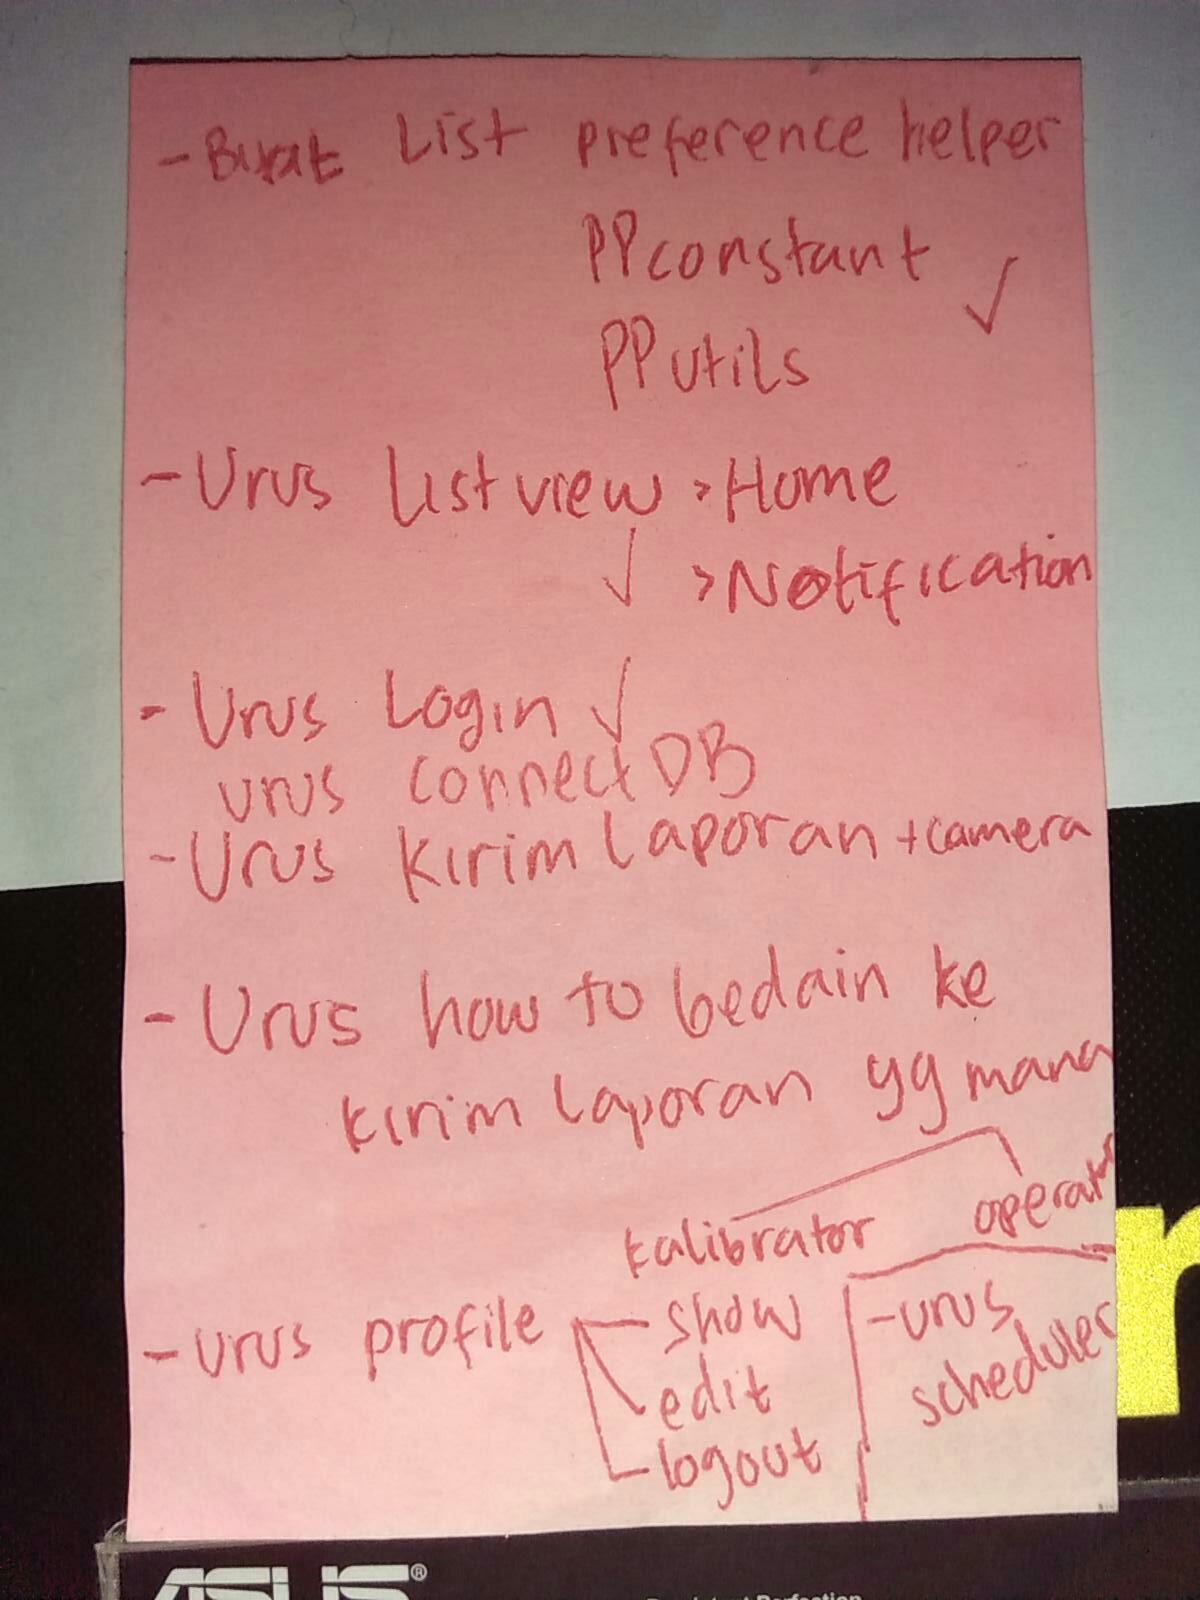 - Buat List preference helper
PPconstant ✓
PPutils
- Urus Listview > Home
✓ > Notification
- Urus Login ✓
urus connect DB
- Urus kirim laporan + camera
- Urus how to bedain ke
kirim laporan yg mana
kalibrator operator
- urus profile - show
edit
- logout
- urus
scheduler
ASUS®